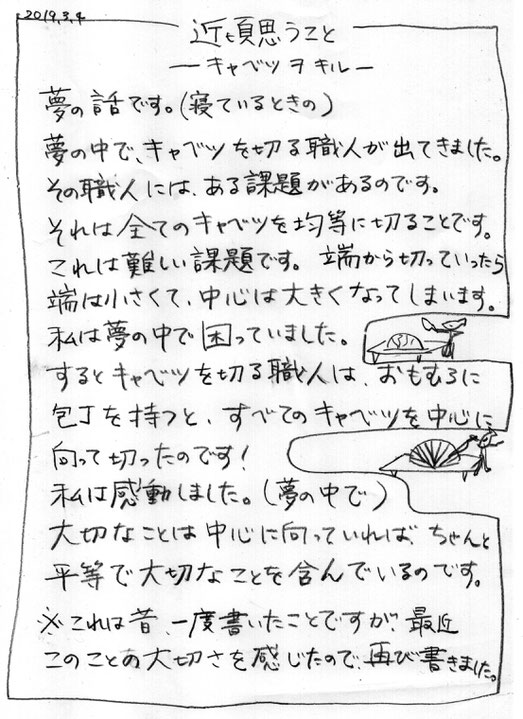 2019.3.4
近頃思うこと
―キャベツヲキル―
夢の話です。(寝ているときの)
夢の中で、キャベツを切る職人が出てきました。
その職人には、ある課題があるのです。
それは全てのキャベツを均等に切ることです。
これは難しい課題です。端から切っていったら
端は小さくて、中心は大きくなってしまいます。
私は夢の中で困っていました。
するとキャベツを切る職人は、おもむろに
包丁を持つと、すべてのキャベツを中心に
向って切ったのです!
私は感動しました。(夢の中で)
大切なことは中心に向っていれば、ちゃんと
平等で大切なことを含んでいるのです。
※これは昔、一度書いたことですが、最近
このことの大切さを感じたので、再び書きました。